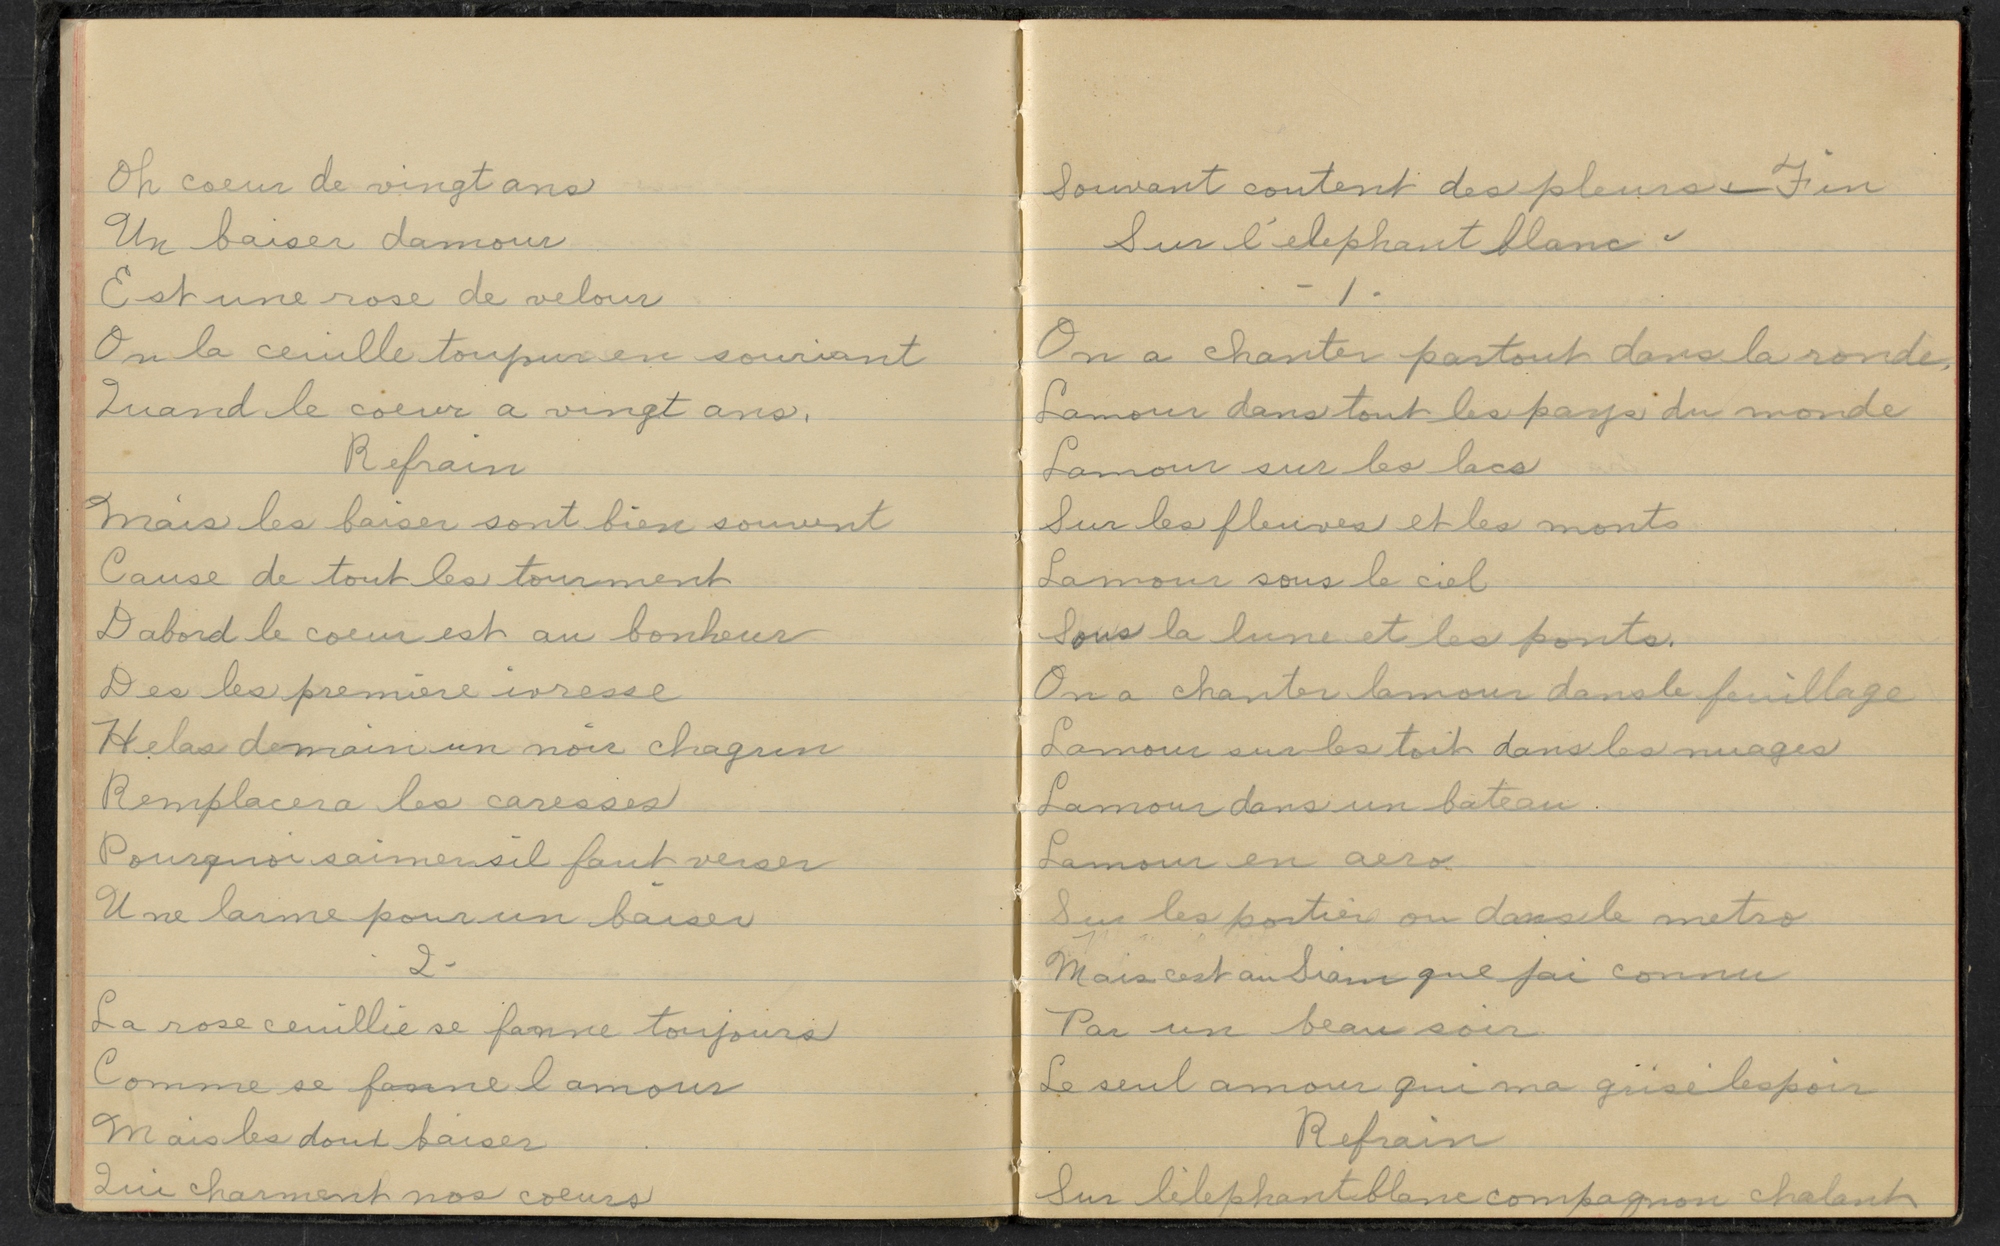 Oh coeur de vingt ans
Un baiser damour
Est une rose de velour
On la ceuille toujour en souriant
Quand le coeur a vingt ans.
Refrain
Mais les baiser sont bien souvent
Cause de tout les tourment
Dabord le coeur est au bonheur
Des les premiere ivresse
Helas demain un noir chagrin
Remplacera les caresses
Pourquoi saimer sil faut verser
Une larme pour un baiser
2-
La rose ceuillie se fanne toujours
Comme se fanne l amour
Mais les doux baiser
Qui charment nos coeurs
Souvant coutent des pleurs - Fin
Sur l'elephant blanc
- 1 -
On a chanter partout dans la ronde,
Lamour dans tout les pays du monde
Lamour sur les lacs
Sur les fleuves et les monts
Lamour sous le ciel
Sous la lune et les ponts.
On a chanter lamour dans le feuillage
Lamour sur les toit dans les nuages
Lamour dans un bateau
Lamour en aero
Sur les portier ou dans le metro
Mais cest au Siam que jai connu
Par un beau soir
Le seul amour qui ma grisé lespoir
Refrain
Sur lélephant blanc compagnon chalant